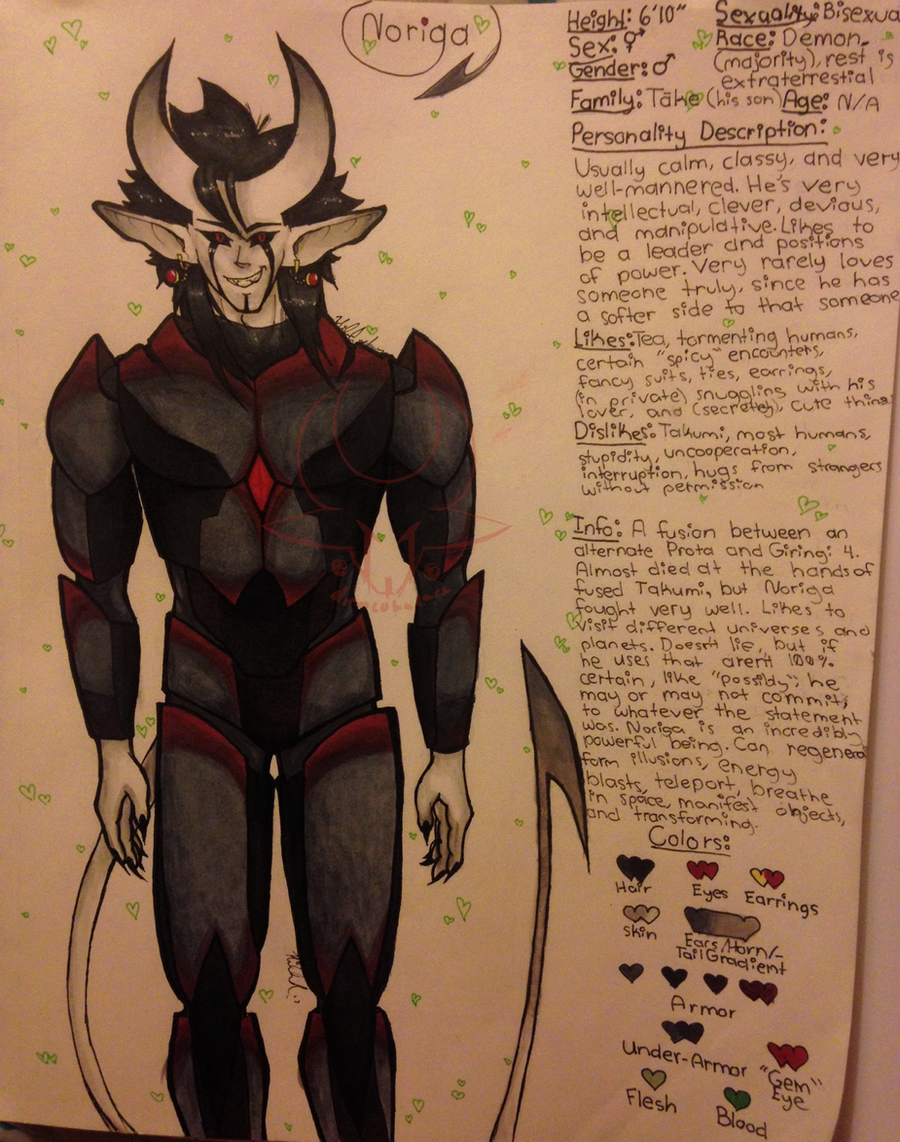 Noriga
Height: 6'10"
Sex: ⚥
Gender: ♂
Sexuality: Bisexua
Race: Demon
(majority), rest is
extraterrestial
Family: Tāke (his son) Age: N/A
Personality Description:
Usually calm, classy, and very
well-mannered. He's very
intellectual, clever, devious,
and manipulative. Likes to
be a leader and positions
of power. Very rarely loves
someone truly, since he has
a softer side to that someone
Likes: Tea, tormenting humans,
certain "spicy" encounters,
fancy suits, ties, earrings,
(in private) snuggling with his
lover, and (secretely), cute thing
Dislikes: Takumi, most humans,
stupidity, uncooperation,
interruption, hugs from strangers
without permission
Info: A fusion between an
alternate Prota and Giring: 4.
Almost died at the hands of
fused Takumi, but Noriga
fought very well. Likes to
visit different universes and
planets. Doesn't lie, but if
he uses that aren't 100%
certain, like "possibly", he
may or may not commit,
to whatever the statement
was. Noriga is an incredibly
powerful being. Can regenera
form illusions, energy
blasts, teleport, breathe
in space, manifest objects,
and transforming.
Colors:
Hair
Eyes
Earrings
Skin
Ears/Horn/-
Tail Gradient
Armor
Under-Armor
"Gem"
Eye
Flesh
Blood